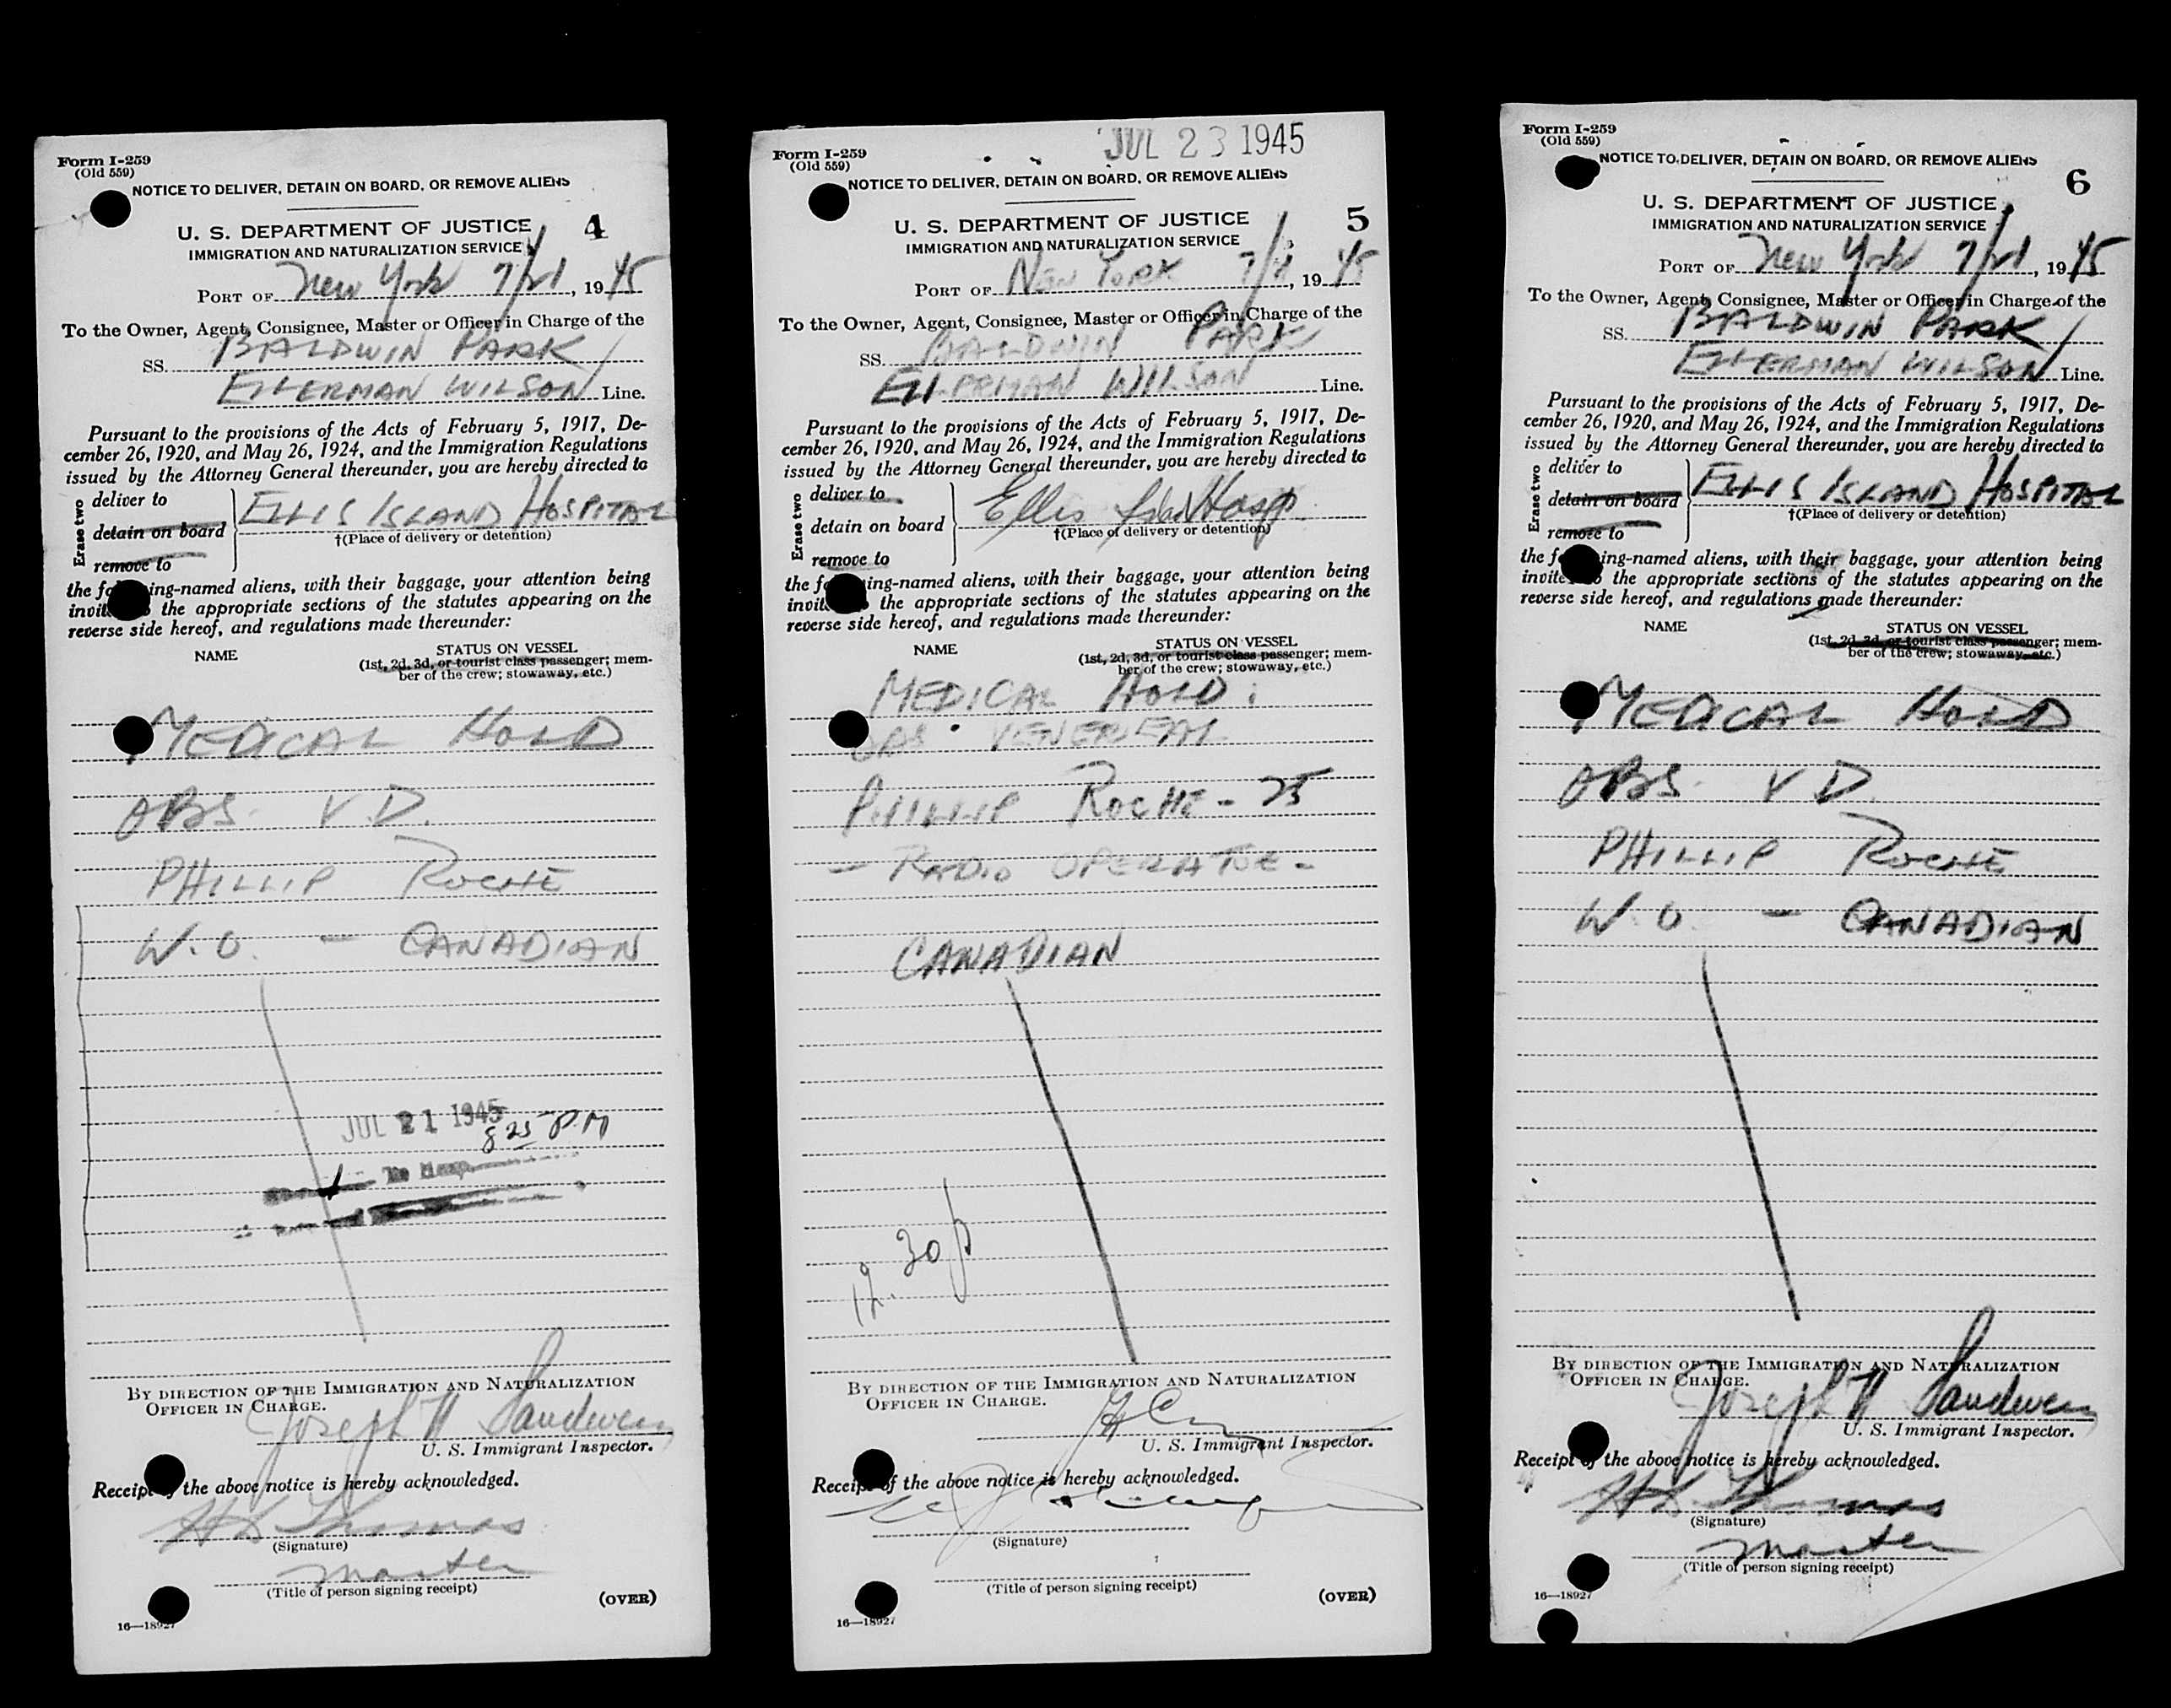 Form I-259
(Old 559)
NOTICE TO DELIVER, DETAIN ON BOARD, OR REMOVE ALIENS
U. S. DEPARTMENT OF JUSTICE
4
IMMIGRATION AND NATURALIZATION SERVICE
PORT OF New York 7/21, 1945
To the Owner, Agent, Consignee, Master or Officer in Charge of the
SS. BALDWIN PARK
ELLERMAN WILSON Line.
Pursuant to the provisions of the Acts of February 5, 1917, De-
cember 26, 1920, and May 26, 1924, and the Immigration Regulations
issued by the Attorney General thereunder, you are hereby directed to
Erase two
deliver to
detain on board
remove to
ELLIS ISLAND HOSPITAL
†(Place of delivery or detention)
the fo ing-named aliens, with their baggage, your attention being
invit the appropriate sections of the statutes appearing on the
reverse side hereof, and regulations made thereunder:
NAME
STATUS ON VESSEL
(1st, 2d, 3d, or tourist class passenger; mem-
ber of the crew; stowaway, etc.)
MEDICAL HOLD
OBS. V.D.
PHILLIP ROCHE
W.O. - CANADIAN
JUL 21 1945
8 25 PM
To Hosp.
BY DIRECTION OF THE IMMIGRATION AND NATURALIZATION
OFFICER IN CHARGE.
Joseph
U. S. Immigrant Inspector.
Receipt of the above notice is hereby acknowledged.
Thomas
(Signature)
Master
(Title of person signing receipt)
(OVER)
16—18927
JUL 23 1945
Form I-259
(Old 559)
NOTICE TO DELIVER, DETAIN ON BOARD, OR REMOVE ALIENS
U. S. DEPARTMENT OF JUSTICE
5
IMMIGRATION AND NATURALIZATION SERVICE
PORT OF NEW YORK 7/21, 1945
To the Owner, Agent, Consignee, Master or Officer in Charge of the
SS. BALDWIN PARK
ELLERMAN WILSON Line.
Pursuant to the provisions of the Acts of February 5, 1917, De-
cember 26, 1920, and May 26, 1924, and the Immigration Regulations
issued by the Attorney General thereunder, you are hereby directed to
Erase two
deliver to
detain on board
remove to
Ellis Island Hosp
†(Place of delivery or detention)
the fo ing-named aliens, with their baggage, your attention being
invit the appropriate sections of the statutes appearing on the
reverse side hereof, and regulations made thereunder:
NAME
STATUS ON VESSEL
(1st, 2d, 3d, or tourist class passenger; mem-
ber of the crew; stowaway, etc.)
MEDICAL HOLD:
OBS. VENEREAL
PHILLIP ROCHE - 25
- RADIO OPERATOR -
CANADIAN
12.30 p
BY DIRECTION OF THE IMMIGRATION AND NATURALIZATION
OFFICER IN CHARGE.
U. S. Immigrant Inspector.
Receipt of the above notice is hereby acknowledged.
(Signature)
(Title of person signing receipt)
(OVER)
16—18927
Form I-259
(Old 559)
NOTICE TO DELIVER, DETAIN ON BOARD, OR REMOVE ALIENS
6
U. S. DEPARTMENT OF JUSTICE
IMMIGRATION AND NATURALIZATION SERVICE
PORT OF New York 7/21, 1945
To the Owner, Agent, Consignee, Master or Officer in Charge of the
SS. BALDWIN PARK
ELLERMAN WILSON Line.
Pursuant to the provisions of the Acts of February 5, 1917, De-
cember 26, 1920, and May 26, 1924, and the Immigration Regulations
issued by the Attorney General thereunder, you are hereby directed to
Erase two
deliver to
detain on board
remove to
ELLIS ISLAND HOSPITAL
†(Place of delivery or detention)
the fo ing-named aliens, with their baggage, your attention being
invite the appropriate sections of the statutes appearing on the
reverse side hereof, and regulations made thereunder:
NAME
STATUS ON VESSEL
(1st, 2d, 3d, or tourist class passenger; mem-
ber of the crew; stowaway, etc.)
MEDICAL HOLD
OBS. V D.
PHILLIP ROCHE
W.O. - CANADIAN
BY DIRECTION OF THE IMMIGRATION AND NATURALIZATION
OFFICER IN CHARGE.
Joseph
U. S. Immigrant Inspector.
Receipt of the above notice is hereby acknowledged.
Thomas
(Signature)
Master
(Title of person signing receipt)
16—18927